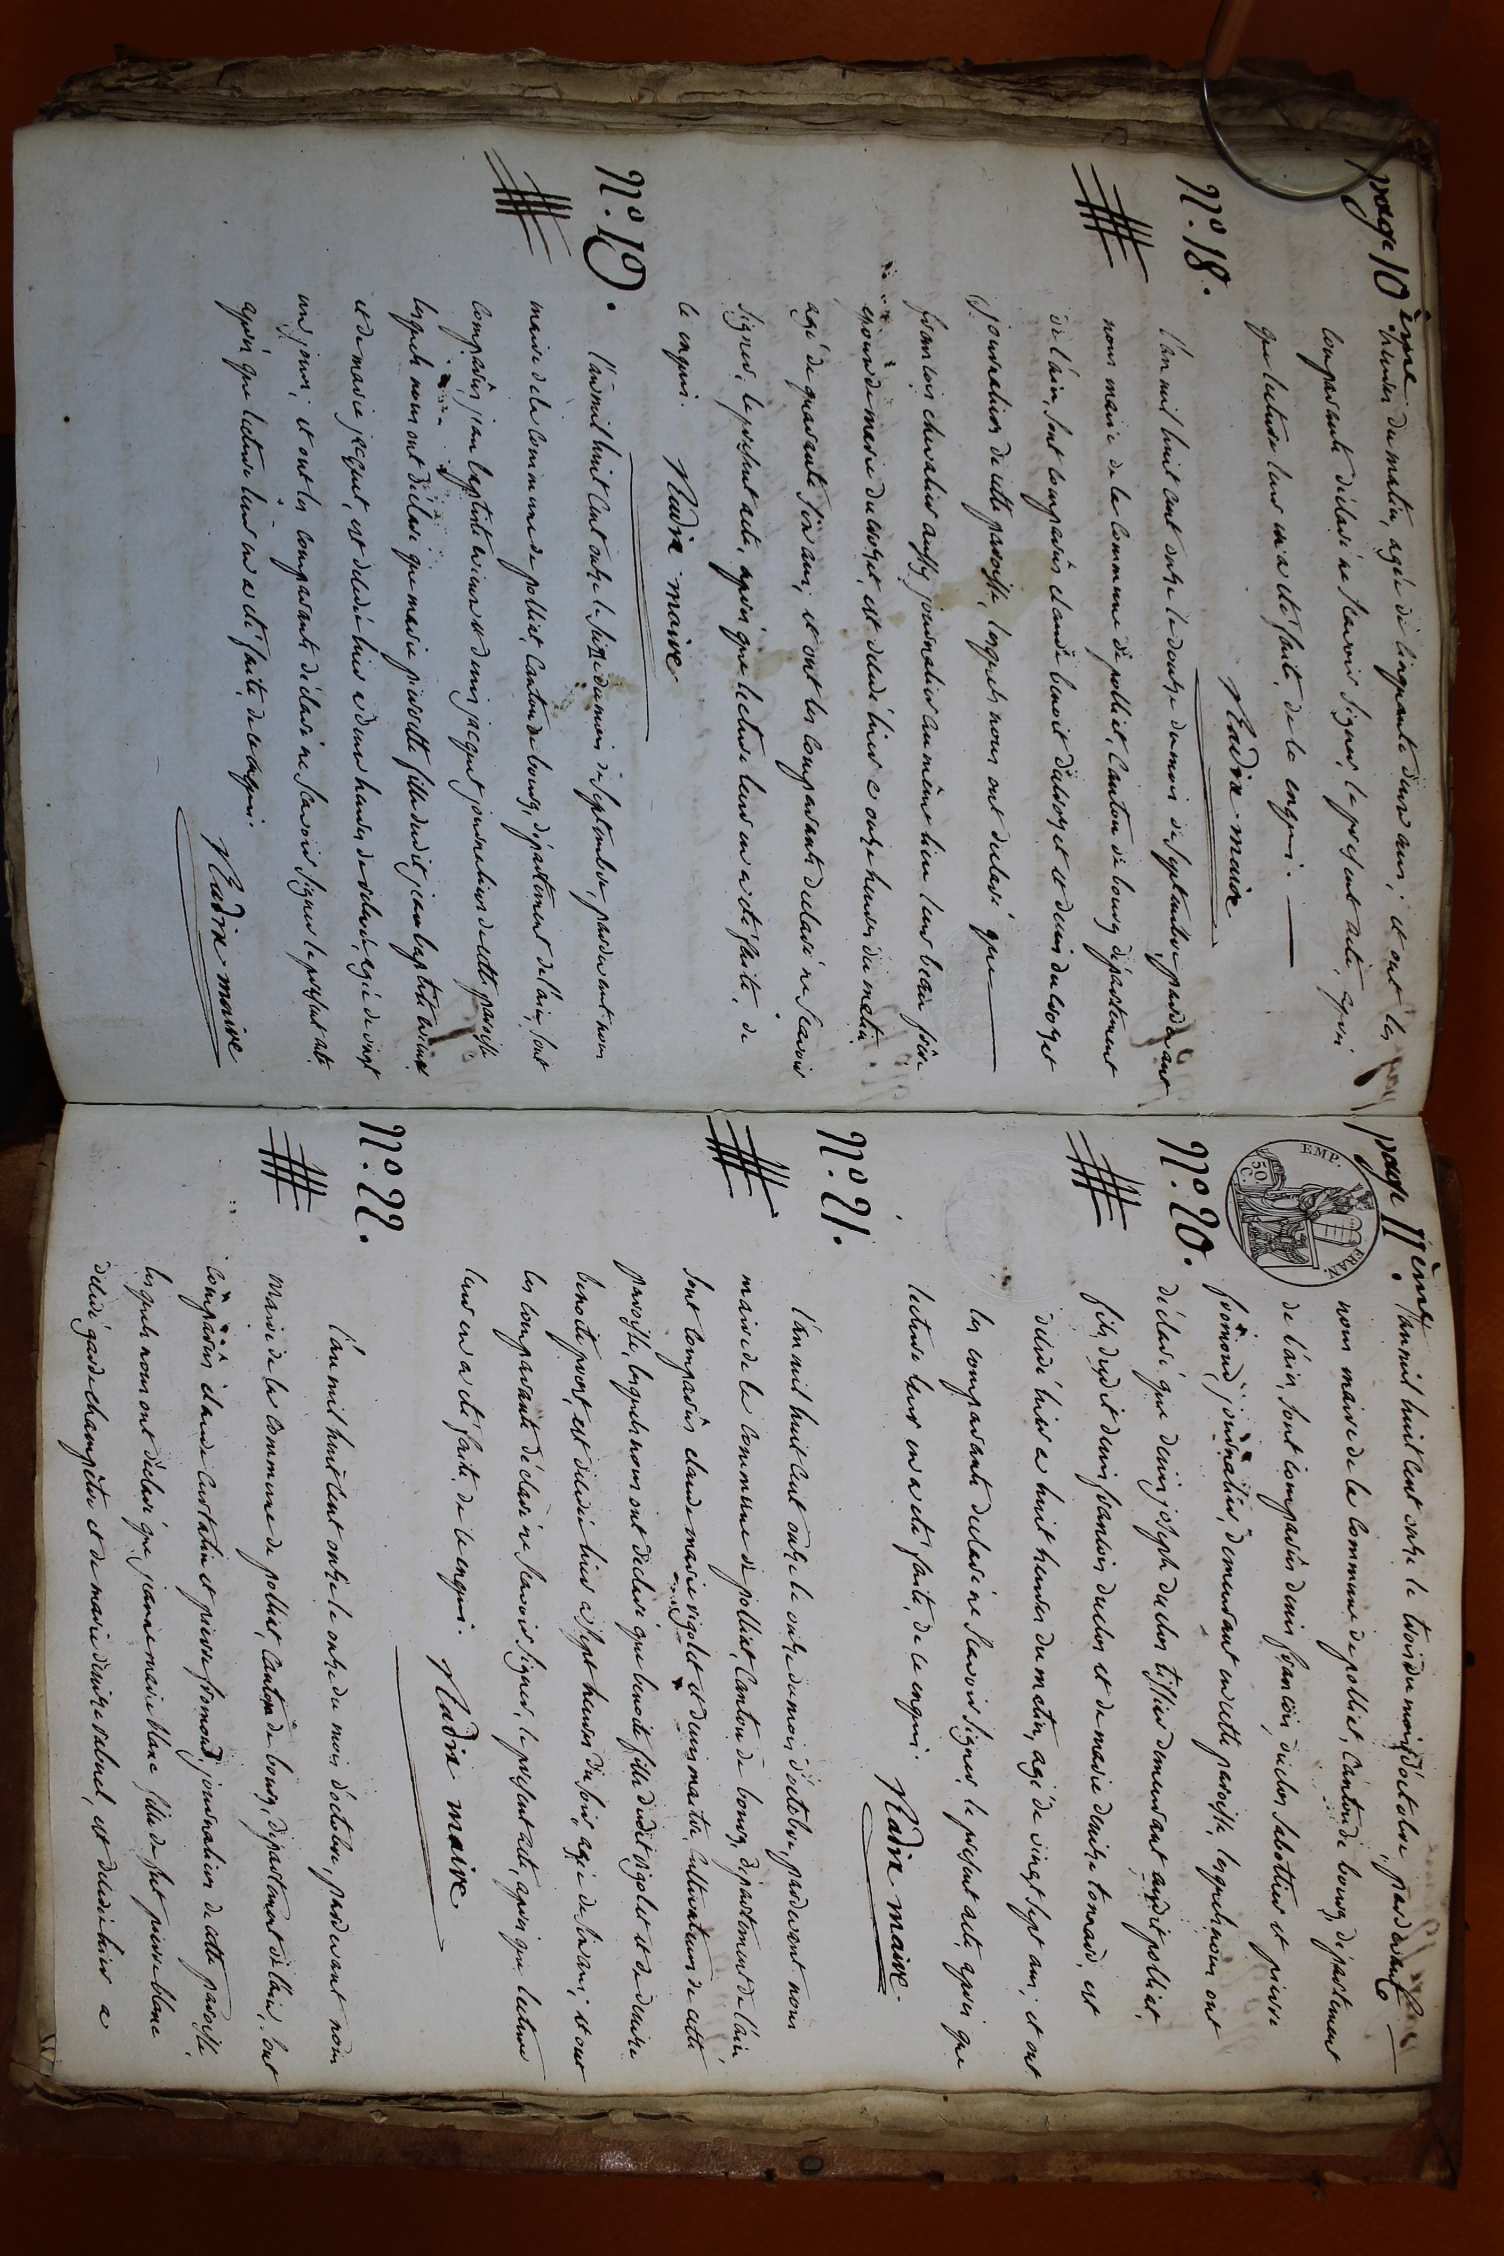 page 10 ème
heures du matin, agée de cinquante deux ans; et ont les
comparants déclaré ne scavoir signer, le présent acte, après
que lecture leur en a été faite, de ce enquis.
Nadin maire
N.º 18.
l'an mil huit cent onze le douze du mois de septembre, pardevant
nous maire de la commune de polliat, canton de bourg département
de l'ain, sont comparûs claude benoit ducroget et denis ducroget
journaliers de cette paroisse, lesquels nous ont déclaré que
francois chevalier aussy journalier au même lieu leur beau frère
epoux de marie ducroget, est décédé hier a onze heures du matin
agé de quarante six ans; et ont les comparants déclaré ne scavoir
signer, le présent acte, après que lecture leur en a été faite, de
ce enquis.
Nadin maire
N.º 19.
l'an mil huit cent onze le seize du mois de septembre, pardevant nous
maire de la commune de polliat, canton de bourg, département de l'ain, sont
comparûs jean baptiste et denis jacquet journaliers de cette paroisse
lesquels nous ont déclaré que marie pierrette fille dudit jean baptiste
et de marie jacquet, est décédée hier a deux heures de relevée, agée de vingt
un jours; et ont les comparants déclaré ne scavoir signer le présent acte
après que lecture leur en a été faite, de ce enquis.
Nadin maire
page 11 ème
EMP. FRAN.
50 C.
N.º 20.
l'an mil huit cent onze le trois du mois d'octobre, pardevant
nous maire de la commune de polliat, canton de bourg, département
de l'ain, sont comparûs denis françois duclos sabottier et pierre
fromond, journalier, demeurant en cette paroisse, lesquels nous ont
déclaré que denis joseph duclos tissier demeurant audit polliat,
fils dudit denis francois duclos et de marie denise tonnard, est
décédé hier a huit heures du matin, agé de vingt sept ans; et ont
les comparants déclaré ne scavoir signer le présent acte après que
lecture leur en a été faite, de ce enquis.
Nadin maire
N.º 21.
l'an mil huit cent onze le onze du mois d'octobre, pardevant nous
maire de la commune de polliat, canton de bourg, département de l'ain
sont comparûs claude marie rigolet et denis cultivateurs de cette
paroisse, lesquels nous ont déclaré que benoite fille dudit rigolet et de denise
benoite puvet, est décédée hier a sept heures du soir, agée de six ans; et ont
les comparants déclaré ne scavoir signer, le présent acte, après que lecture
leur en a été faite de ce enquis.
Nadin maire
N.º 22.
l'an mil huit cent onze le onze du mois d'octobre, pardevant nous
maire de la commune de polliat, canton de bourg, département de l'ain, sont
comparus claude curtatin et pierre fromond, journaliers de cette paroisse,
lesquels nous ont déclaré que jeanne marie blanc fille de feut pierre blanc
décédé garde champêtre et de marie denise, est décédée hier a